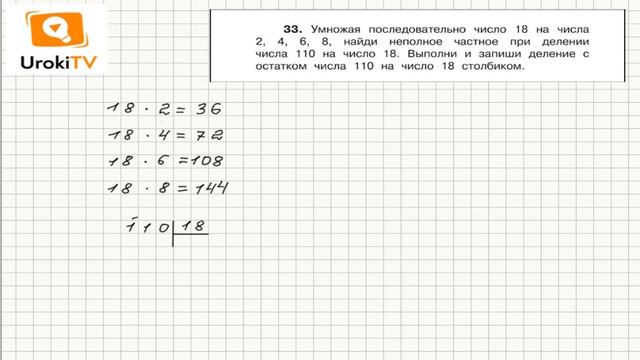 UrokiTV
33. Умножая последовательно число 18 на числа
2, 4, 6, 8, найди неполное частное при делении
числа 110 на число 18. Выполни и запиши деление с
остатком числа 110 на число 18 столбиком.
18 · 2 = 36
18 · 4 = 72
18 · 6 = 108
18 · 8 = 144
110 18